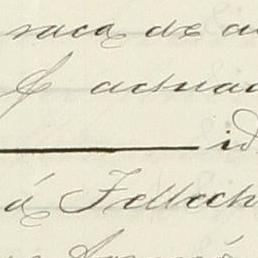 raca de a
y actuad
id
á Fellech